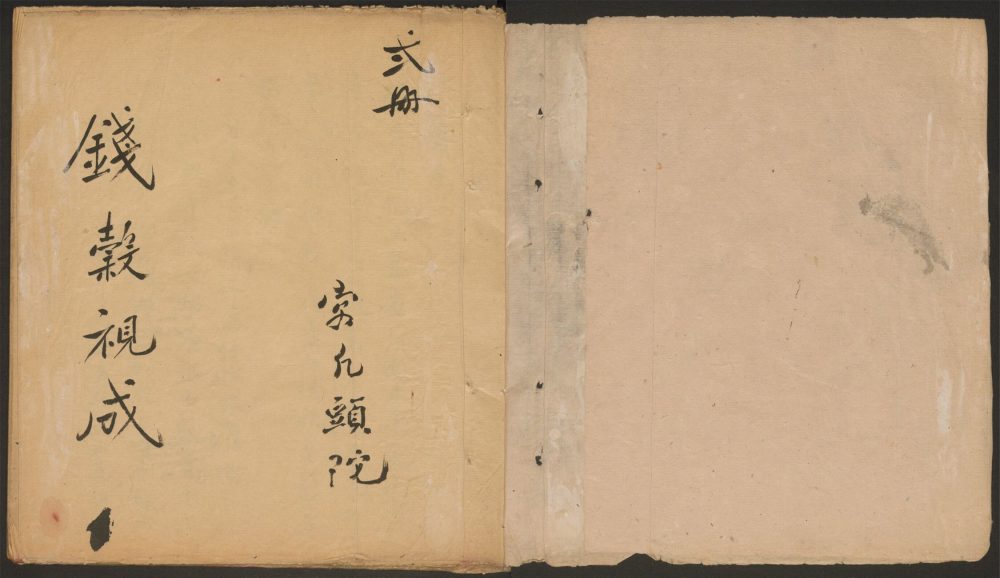 弍册
頭院
錢穀視成